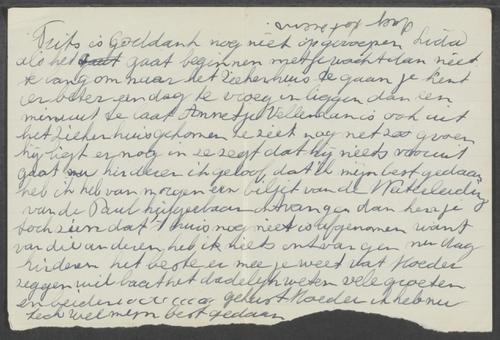 Frits is Goddank nog niet opgeroepen Lida
als het gaat beginnen met je wacht dan niet
te lang om naar het Ziekenhuis te gaan je kent
er beter een dag te vroeg in liggen dan een
minuut te laat Annetje Velleman is ook uit
het Ziekenhuis gekomen ze ziet nog net zoo groen
hij ligt er nog in ze zegt dat hij niets vooruit
gaat nu kinderen ik geloof dat ik mijn best gedaan
heb ik heb van morgen een biljet van de Waterleiding
van de Paul ontvangen dan kan je
toch zien dat thuis nog niet is opgenomen want
van die anderen heb ik niets ontvangen nu dag
kinderen het beste er mee je weet wat Moeder
zeggen wil laat het dadelijk weten vele groeten
en beiden gekust Moeder ik heb nu
toch wel mijn best gedaan